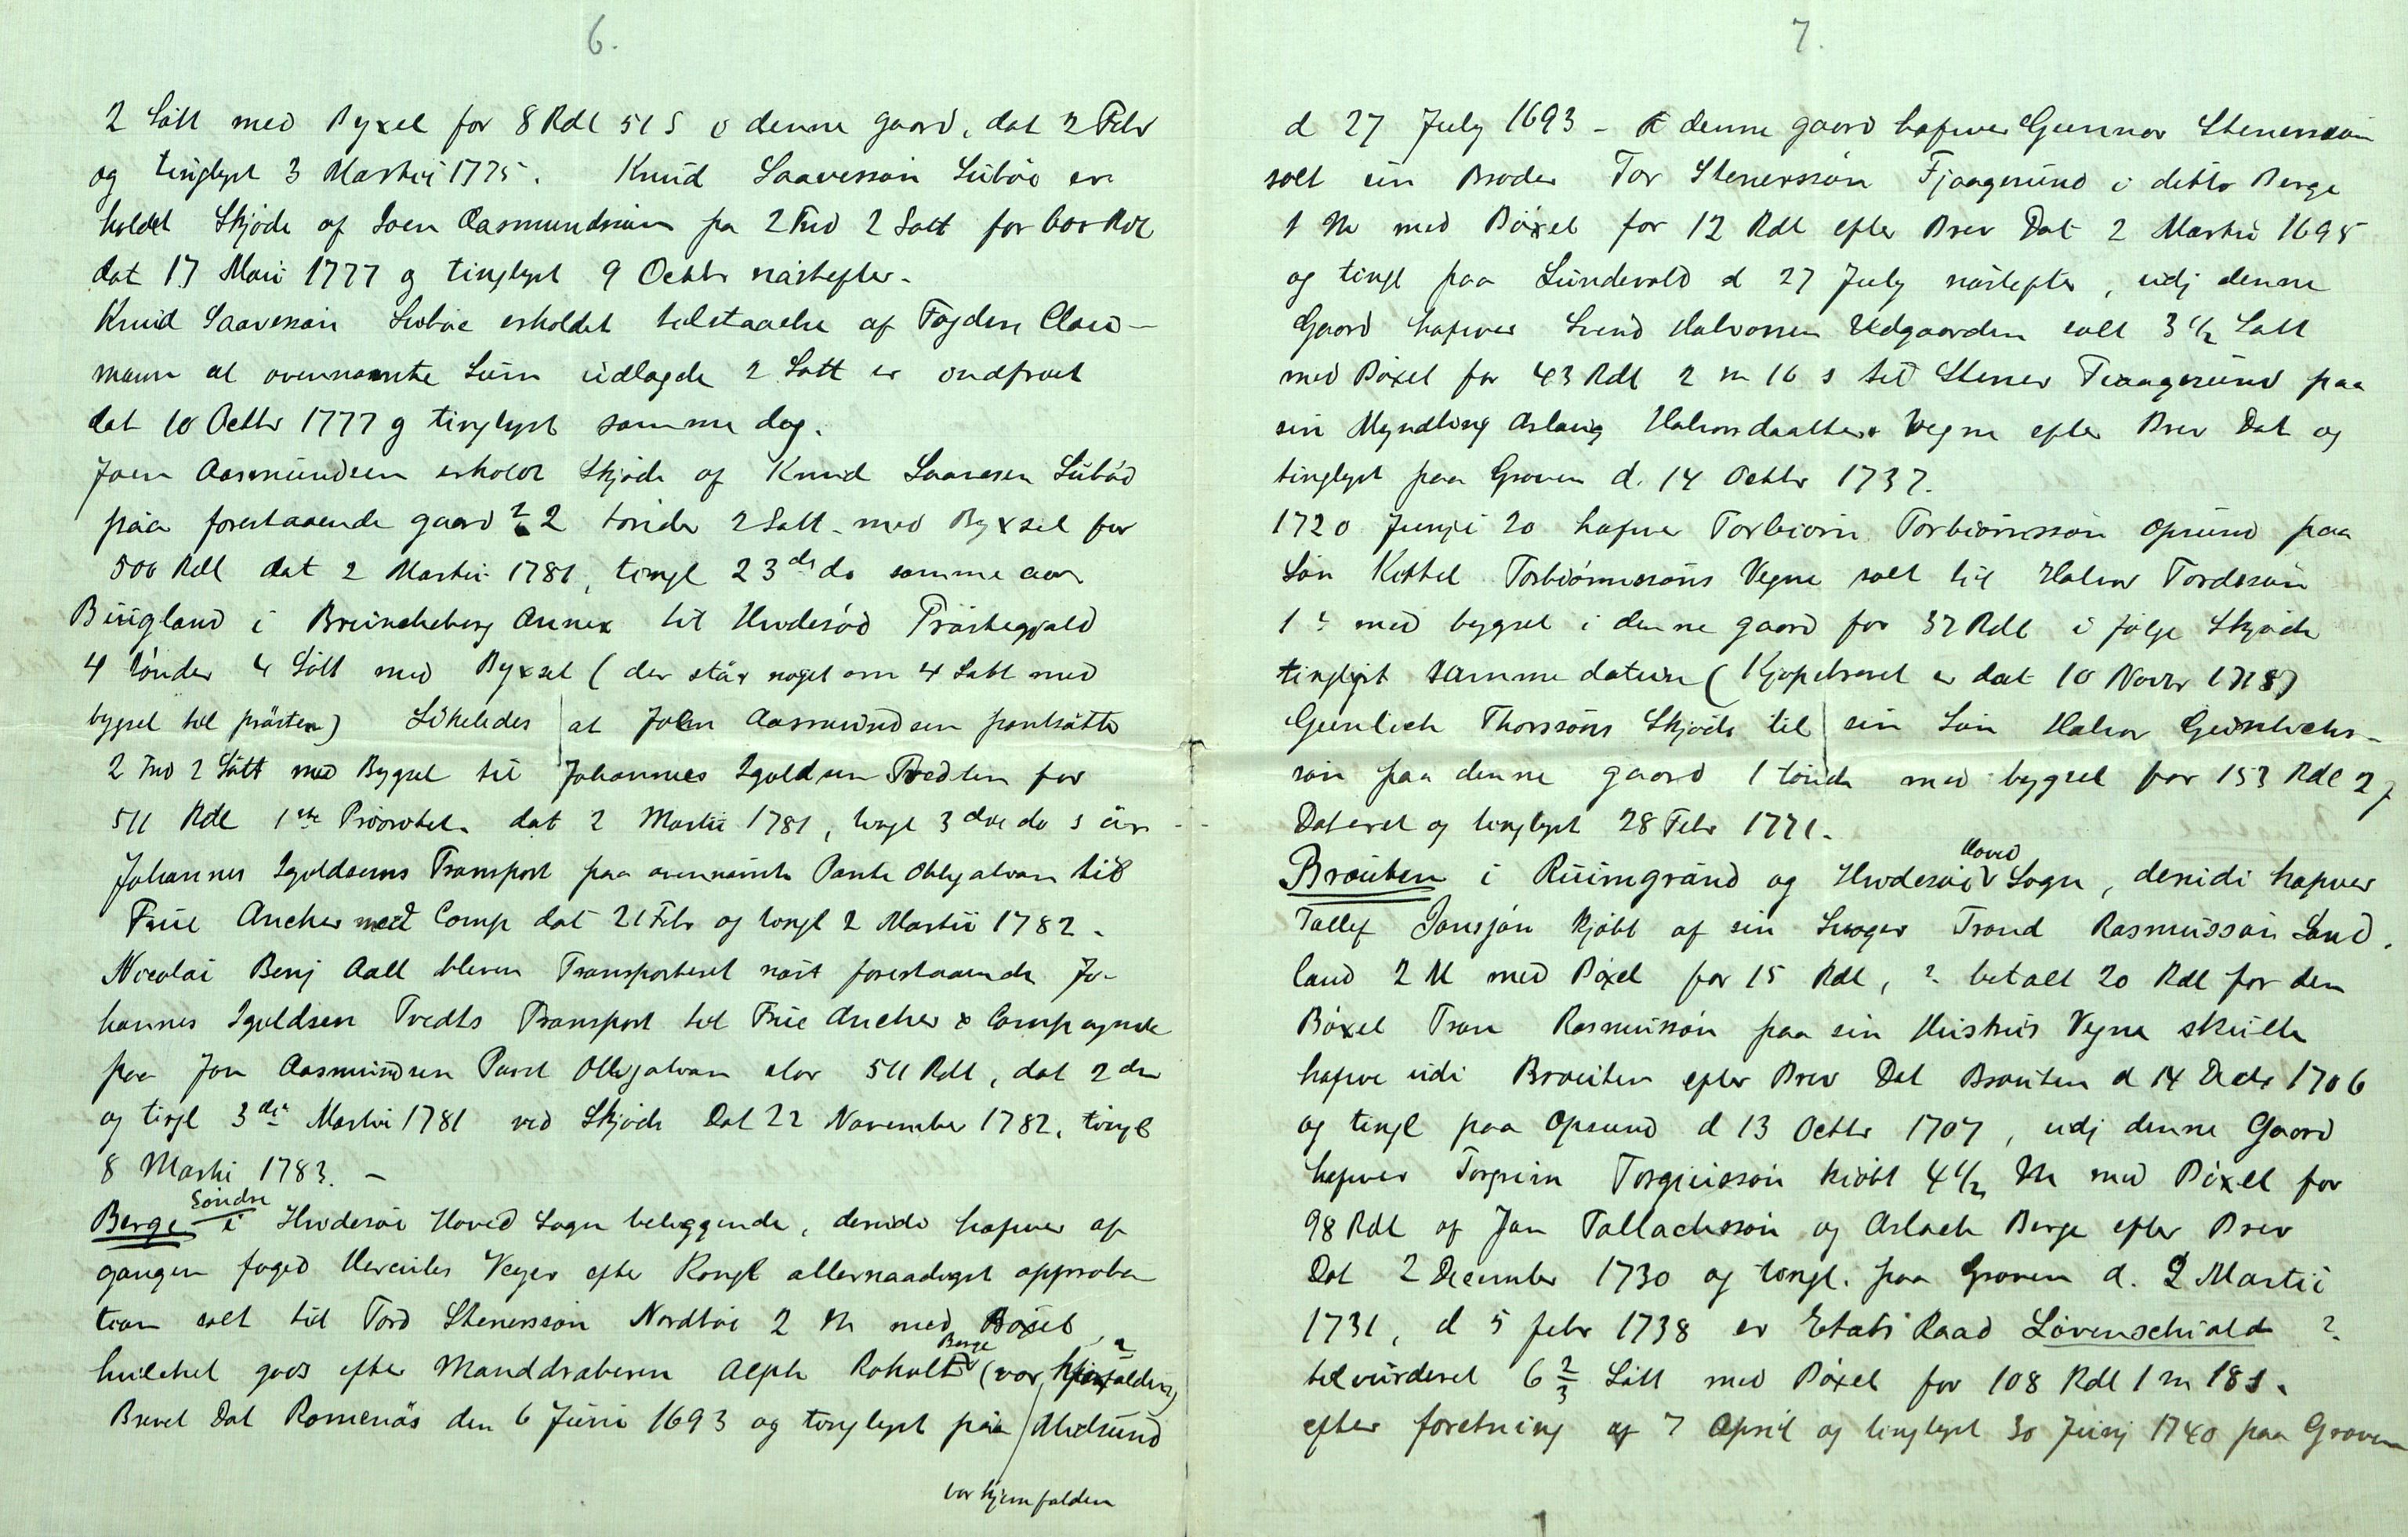 6.
2 Sått med Byxel for 8 Rdl 51 S i denne gaard, dat 2 Febr
og tinglyst 3 Martii 1775. Knud Saavesson Lübøe er
holdt Skjøde af Joen Aasmundsøn pa 2 Tnd 2 Satt for 600 Rdl
dat 17 Maii 1777 g tinglyst 9 Octbr nästefter.
Knud Saavessøn Lubøe erholdet tilstaaelse af Fogden Clau-
mann at ovennæmte Süm üdlagde 2 Satt er indfriet
dat 10 Octbr 1777 g tinglyst samme dag.
Joen Aasmündsen erholdt Skjøde af Knud Saavesen Lübøe
påa forestaaende gaard 2 tønder 2 Satt med Byxsel for
500 Rdl dat 2 Martii 1781, tingl 23 de do samme aar
Bøigland i Brünckeberg Annex til Hvidesød Prästegjæld
4 tönder 4 Sått med Byxsel (der står noget om 4 Satt med
bygsel til prästen) Likeledes at Joen Aasmündsen pantsätte
2 Tnd 2 Sått med Bygsel til Johannes Igoldsen Tvedten for
511 Rdl 1ste Prioritet. dat 2 Martii 1781, tingl 3 die do s år
Johannes Igoldsens Transport paa ovennämte Pante Obligation til
Frue Ancher med Comp dat 21 Febr og tingl 2 Martii 1782.
Nicolai Benj Aall bleven Transporteret näst forestaaende Jo-
hannes Igoldsen Tvedts Transport til Frue Ancher & Compagnie
paa Jon Aasmündsen Pant Obligation stor 511 Rdl, dat 2 den
og tingl 3 die Martii 1781 ved Skjøde Dat 22 November 1782, tingl
8 Marti 1783. -
Søndre
Berge i Hvidesøe Hoved Sogn beliggende, deridi hafwer af
gangen foged Hercules Weyer efter Kongl allernaadigst approba
tion solt till Tord Stenersson Nordbøe 2 Hr med Böxel
Berge
hvilchet gods efter Manddraberen Alph Roholt (var hjemfalden)
Brevet Dat Romenäs den 6 Junii 1693 og tinglyst påa Midsund
var hjemfalden
7.
d 27 July 1693 - A denne gaard hafwer Gunnar Stenerssøn
solt sin Broder Tor Stenerssøn Fjaagesund i ditto Berge
1 Hr med Böxel for 12 Rdl efter Brev Dat 2 Martii 1695
og tingl paa Sündevold d 27 July nästefter, udj denne
Gaard hafwer Svend Halvorsen Utdgaarden solt 3 1/2 Satt
med Böxel for 43 Rdl 2 m 16 s till Stener Fiaagesund paa
sin Myndling Aslaüg Halvorsdaatters Vegne efter Brev Dat og
tinglyst paa Groven d. 14 Octbr 1737.
1720 Junji 20 hafwer Torbiørn Torbiørnssøn Opsünd paa
Søn Kittel Torbiørnssøns Vegne solt til Halvor Tordssøn
1 ? med bygsel i denne gaard for 32 Rdl i følge Skjøde
tinglyst samme datum (Kjøpebrevet er dat 10 Novbr 1718)
Gunlich Thorssøns Skjøde til sin Søn Halvor Gunlichs-
søn paa denne gaard 1 tønde med bygsel for 153 Rdl 2
Dateret og tinglyst 28 Febr 1771.
Hoved
Broüten i Rüimgrand og Hvidesøe Sogn, deridi hafwer
Tallef Jonsøn kjøbt af sin Swoger Trond Rasmussøn Land
land 2 H med Böxel for 15 Rdl, ? betalt 20 Rdl for den
Böxel Tron Rasmussøn paa sin Hustrüs Vegne skülle
hafwe udi Broüten efter Brev Dat Broüten d 14 Decbr 1706
og tingl paa Opsund d 13 Octbr 1707, udj denne Gaard
hafwer Torgrim Torgrimssøn kiøbt 4 1/2 Hr med Böxel for
98 Rdl af Jon Tallachssøn og Aslach Berge efter Brev
Dat 2 December 1730 og tingl. paa Groven d. 2 Martii
1731, d 5 febr 1738 er Etats Raad Lövenschiold ?
til vürderet 6 2/3 Sått med Böxel for 108 Rdl 1 m 18 s.
efter foretning af 7 April og tinglyst 30 Junj 1740 paa Groven